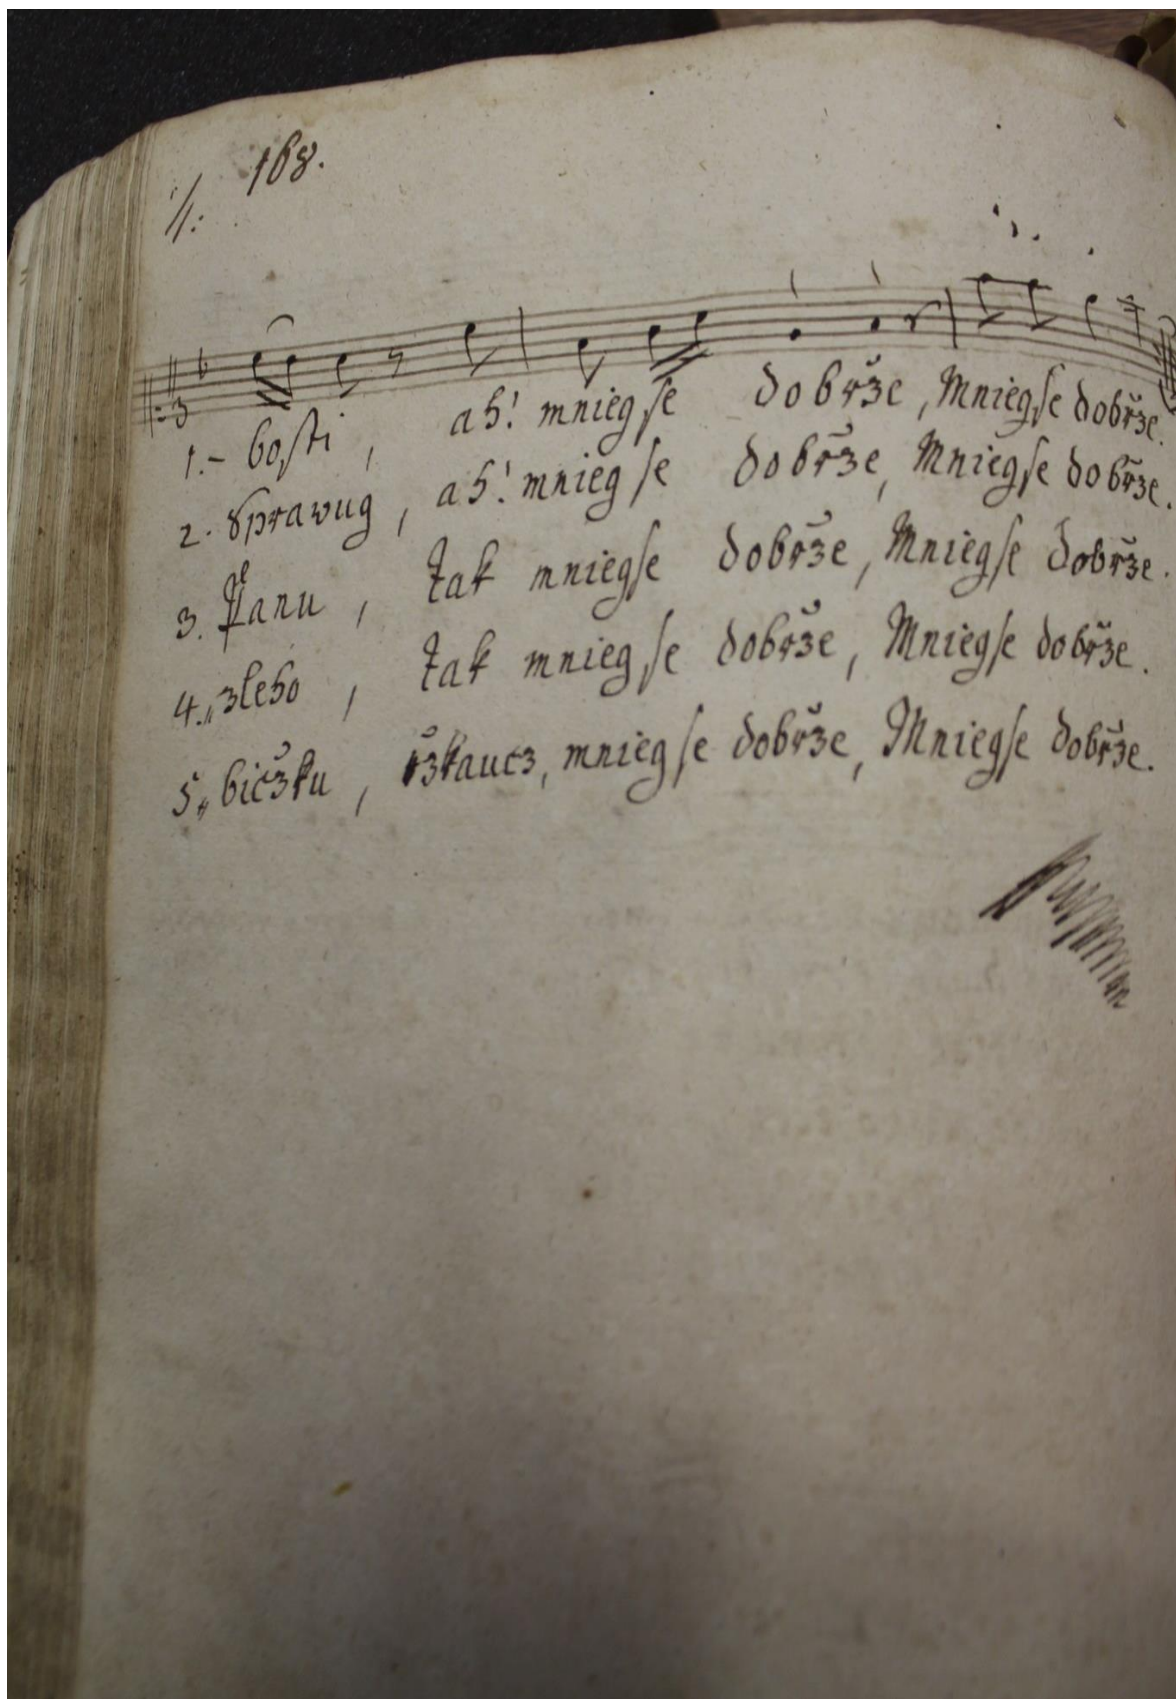 //: 168.
1.- bosti, ah! mniegse dobrže, Mniegse dobrže.
2. Sprawug, ah! mniegse dobrže, Mniegse dobrže.
3. Panu, tak mniegse dobrže, Mniegse dobrže.
4. zleho, tak mniegse dobrže, Mniegse dobrže.
5. bičzku, ržkaucz, mniegse dobrže, Mniegse dobrže.